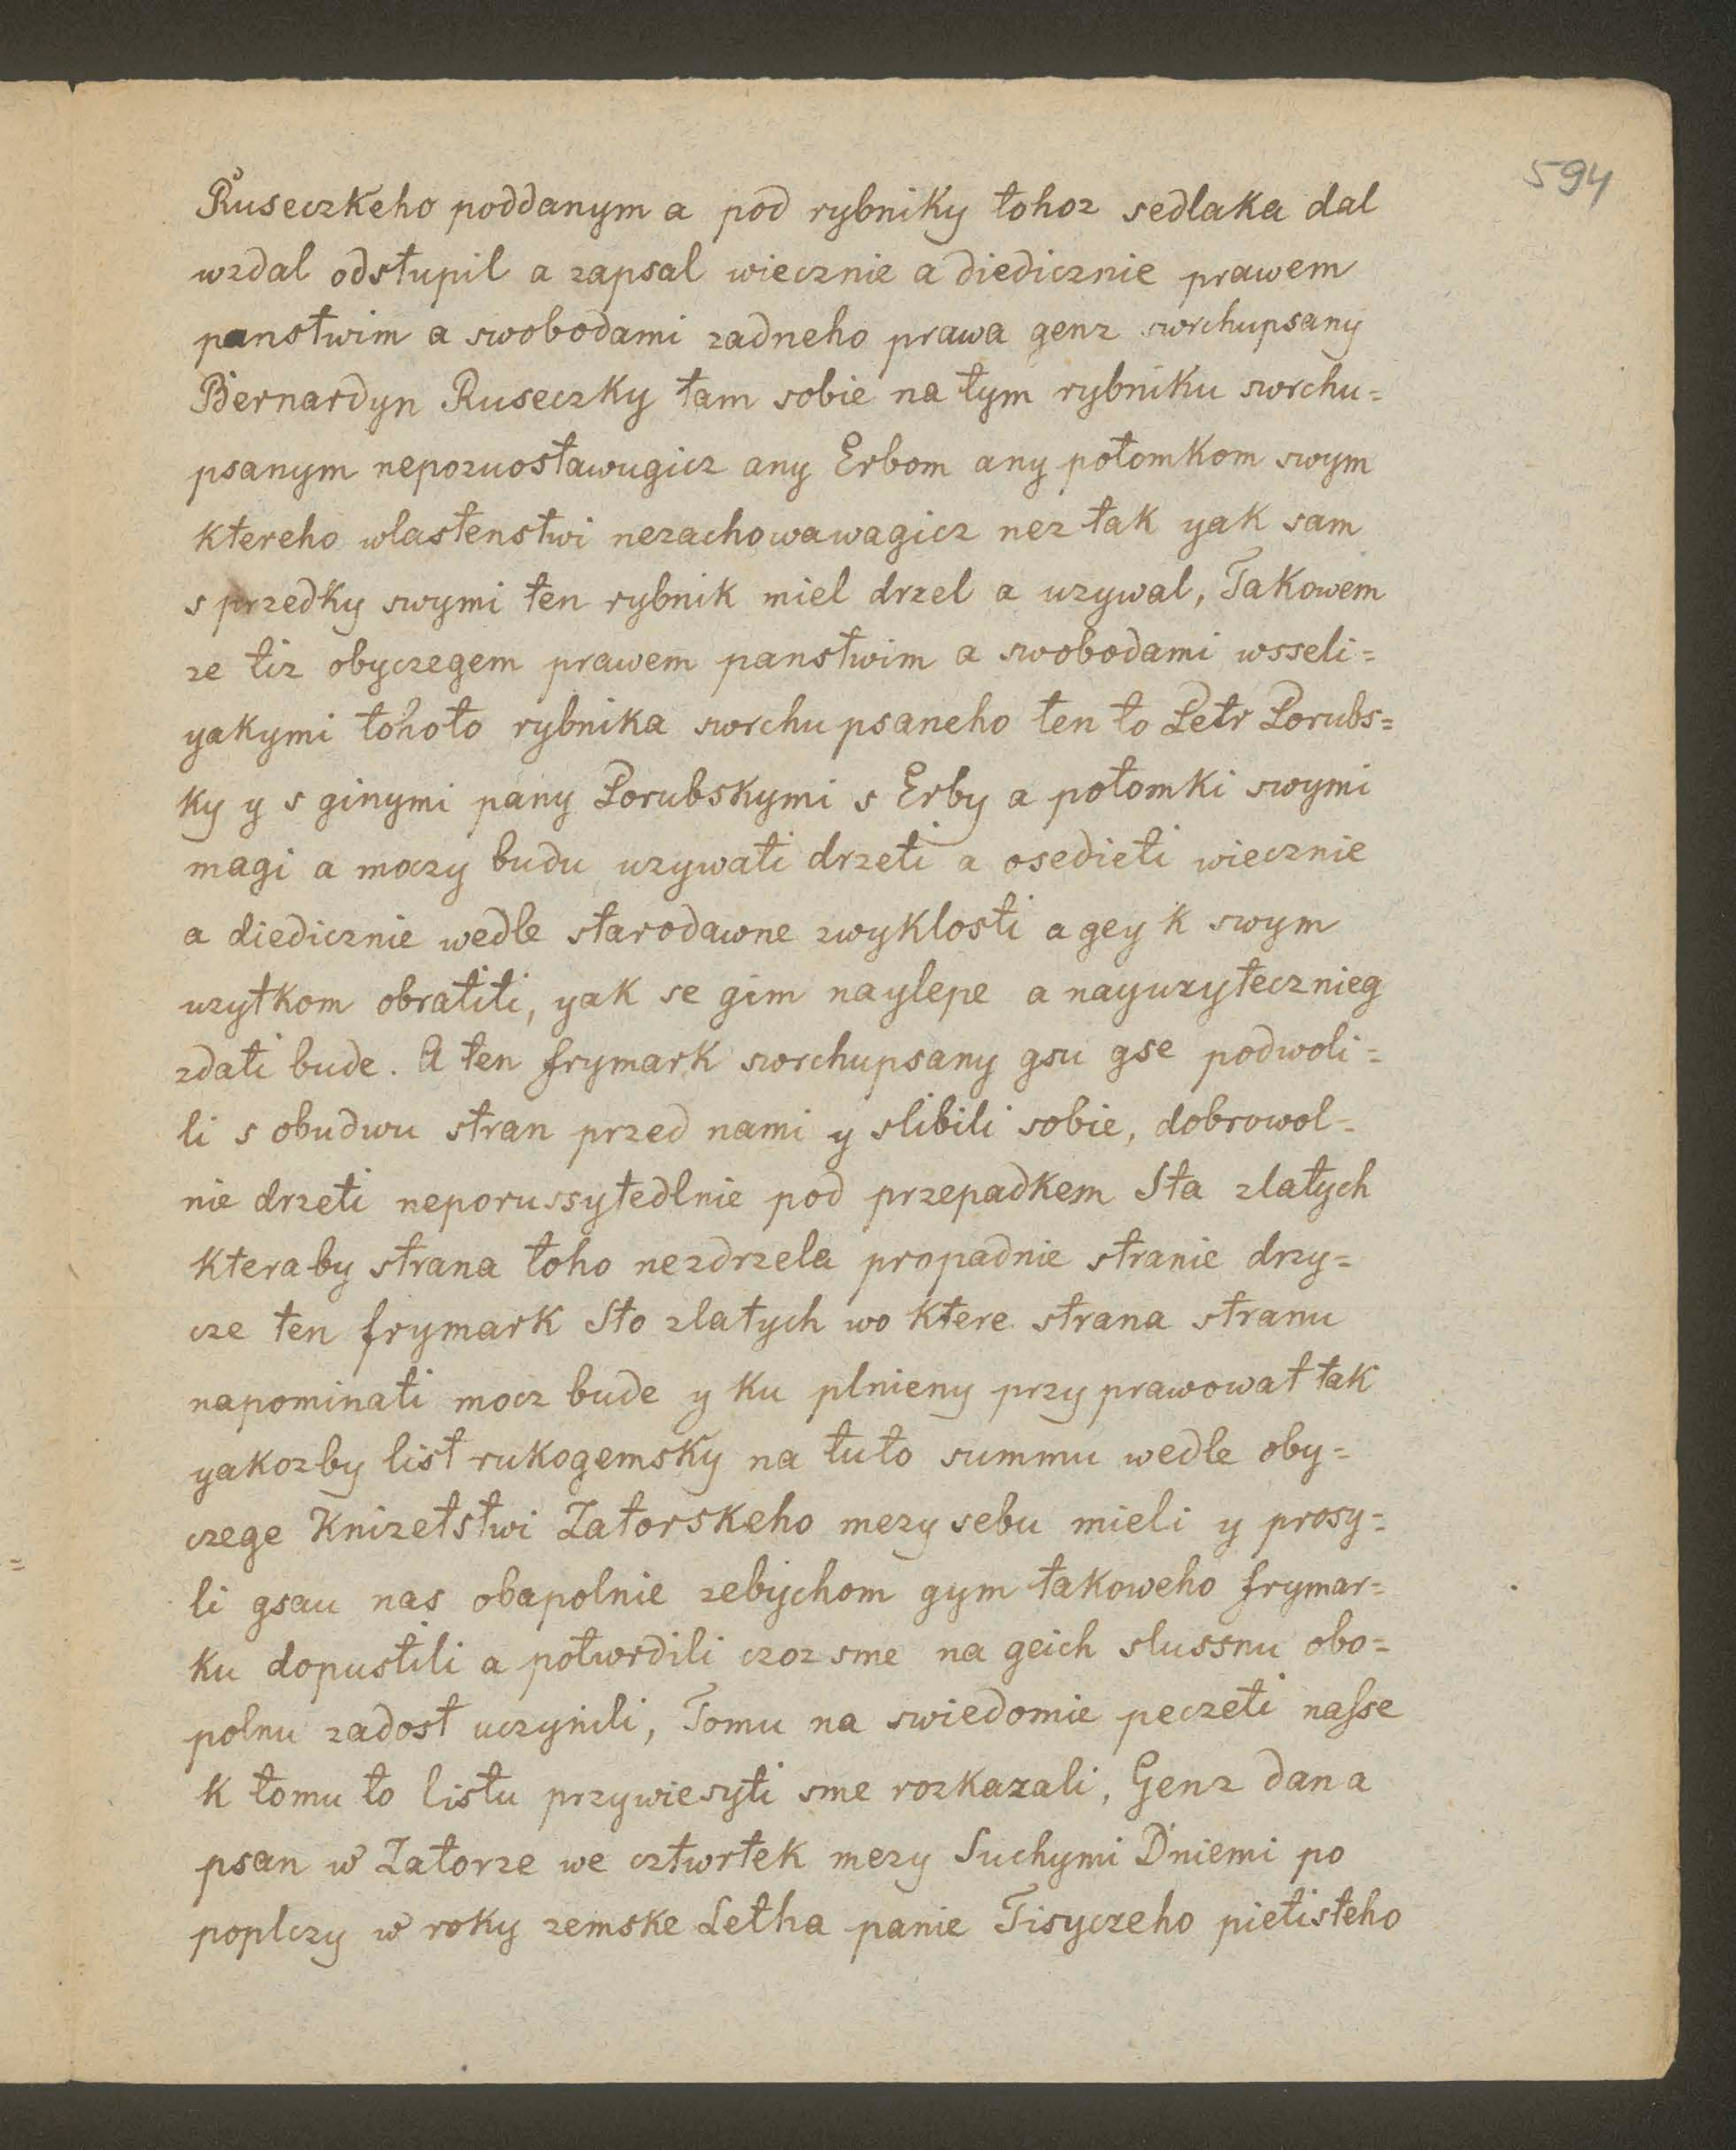 594
Ruseczkeho poddanym a pod rybniky tohoz sedlaka dal
wzdal odstupil a zapsal wiecznie a diedicznie prawem
panstwim a swobodami zadneho prawa genz swrchupsany
Bernardyn Ruseczky tam sobie na tym rybniku swrchu=
psanym nepozuostawugicz any Erbom any potomkom swym
ktereho wlastenstwi nezachowawagicz nez tak yak sam
s przedky swymi ten rybnik miel drzel a uzywal, Takowem
ze tiz obyczegem prawem panstwim a swobodami wsseli=
yakymi tohoto rybnika swrchu psaneho ten to Petr Porubs=
ky y s ginymi pany Porubskymi s Erby a potomki swymi
magi a moczy budu uzywati drzeti a osedieti wiecznie
a diedicznie wedle starodawne zwyklosti a gey k swym
uzytkom obratiti, yak se gim naylepe a nayuzytecznieg
zdati bude. A ten frymark swrchupsany gsu gse podwoli=
li s obudwu stran przed nami y slibili sobie, dobrowol=
nie drzeti neporussytedlnie pod przepadkem Sta zlatych
kteraby strana toho nezdrzela propadnie stranie drzy=
cze ten frymark Sto zlatych wo ktere strana stranu
napominati mocz bude y ku plnieny przyprawowat tak
yakozby list rukogemsky na tuto summu wedle oby=
czege Knizetstwi Zatorskeho mezy sebu mieli y prosy=
li gsau nas obapolnie zebychom gym takoweho frymar=
ku dopustili a potwrdili czoz sme na geich slussnu obo=
polnu zadost uczynili, Tomu na swiedomie peczeti nasse
k tomu to listu przywiesyti sme rozkazali, Genz dan a
psan w Zatorze we cztwrtek mezy Suchymi Dniemi po
poplczy w roky zemske Letha panie Tisyczeho pietisteho